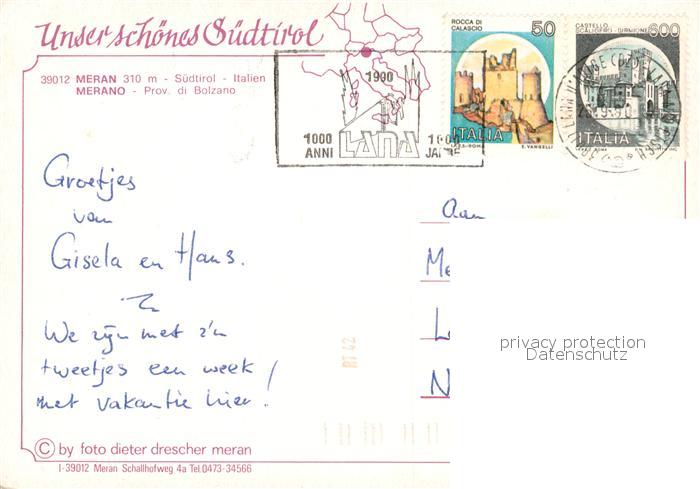 Unser schönes Südtirol
39012 MERAN 310 m - Südtirol - Italien
MERANO - Prov. di Bolzano
1990
1000 ANNI
LANA
JAHRE
ROCCA DI CALASCIO
50
ITALIA
I.P.Z.S.-ROMA E. VANGELLI
CASTELLO SCALIGERO - SIRMIONE
600
ITALIA
Groetjes
van
Gisela en Hans.
We zijn met z'n
tweetjes een week
met vakantie hier!
Aan
Me
L
N
privacy protection
Datenschutz
RT 42
© by foto dieter drescher meran
I-39012 Meran Schallhofweg 4a Tel.0473-34566